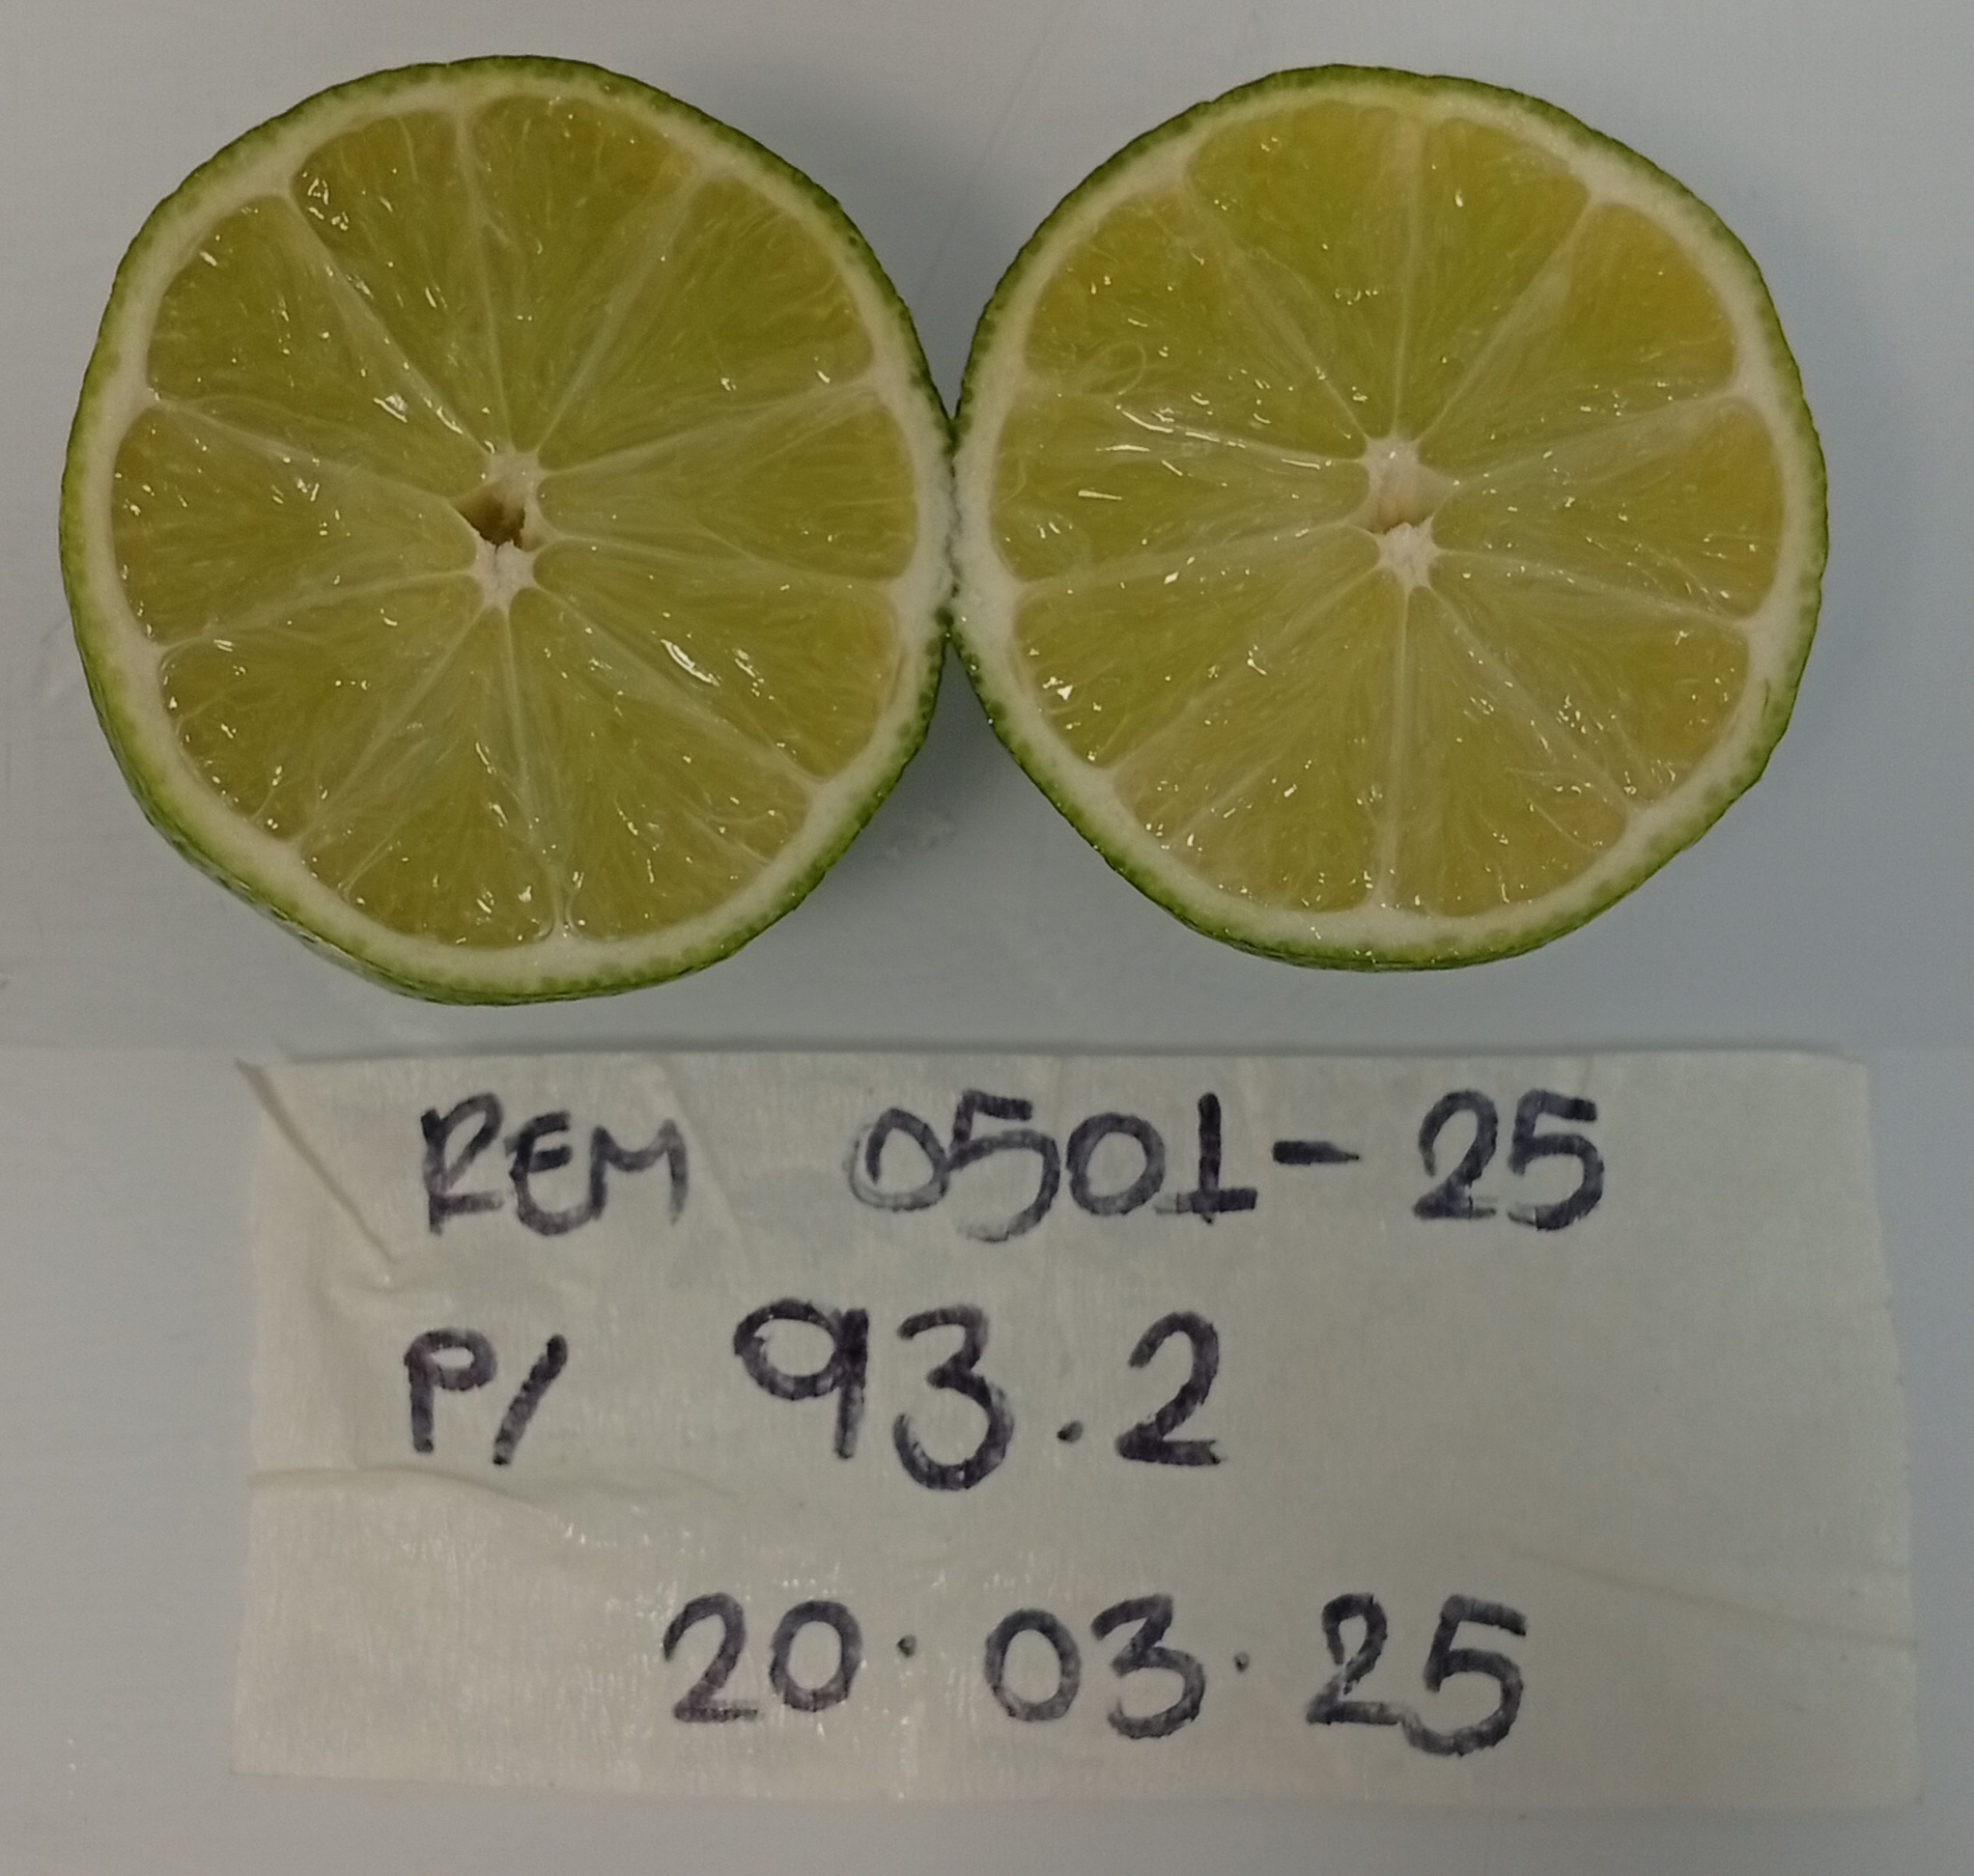 REM 0501-25
P/ 93.2
20.03.25